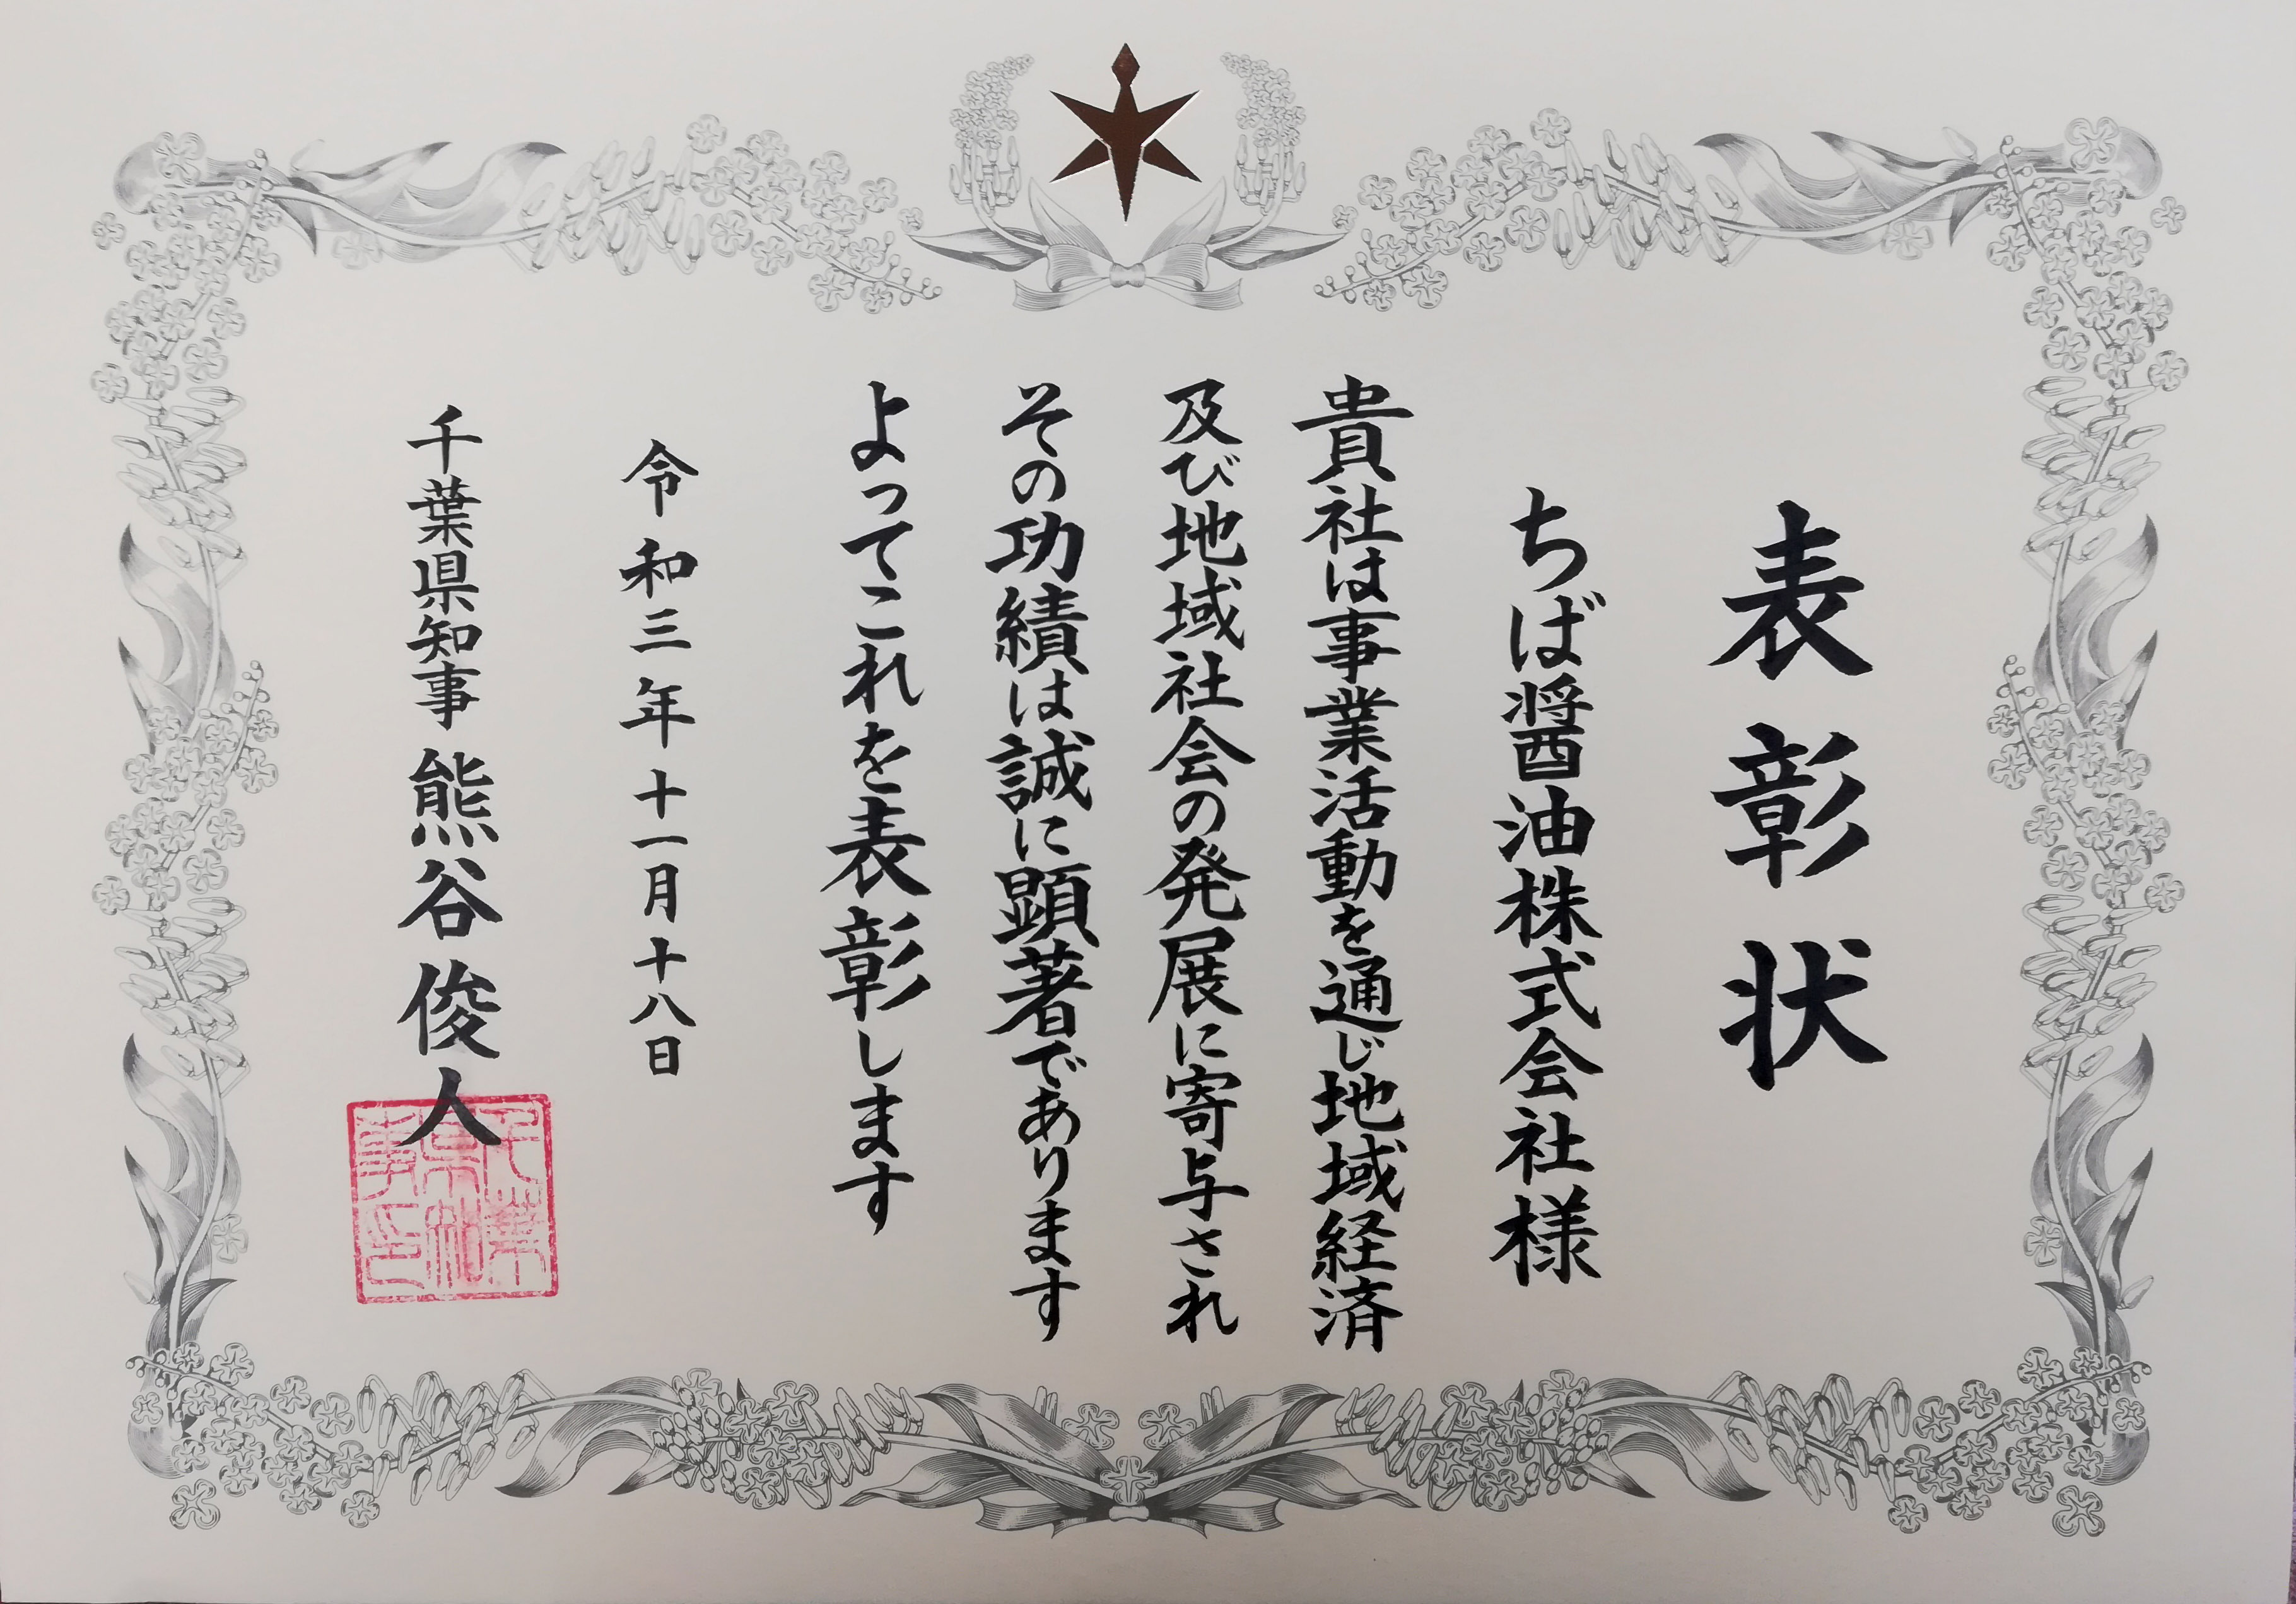 表彰状
ちば醤油株式会社様
貴社は事業活動を通じ地域経済
及び地域社会の発展に寄与され
その功績は誠に顕著であります
よってこれを表彰します
令和三年十一月十八日
千葉県知事 熊谷俊人
千葉県知事印